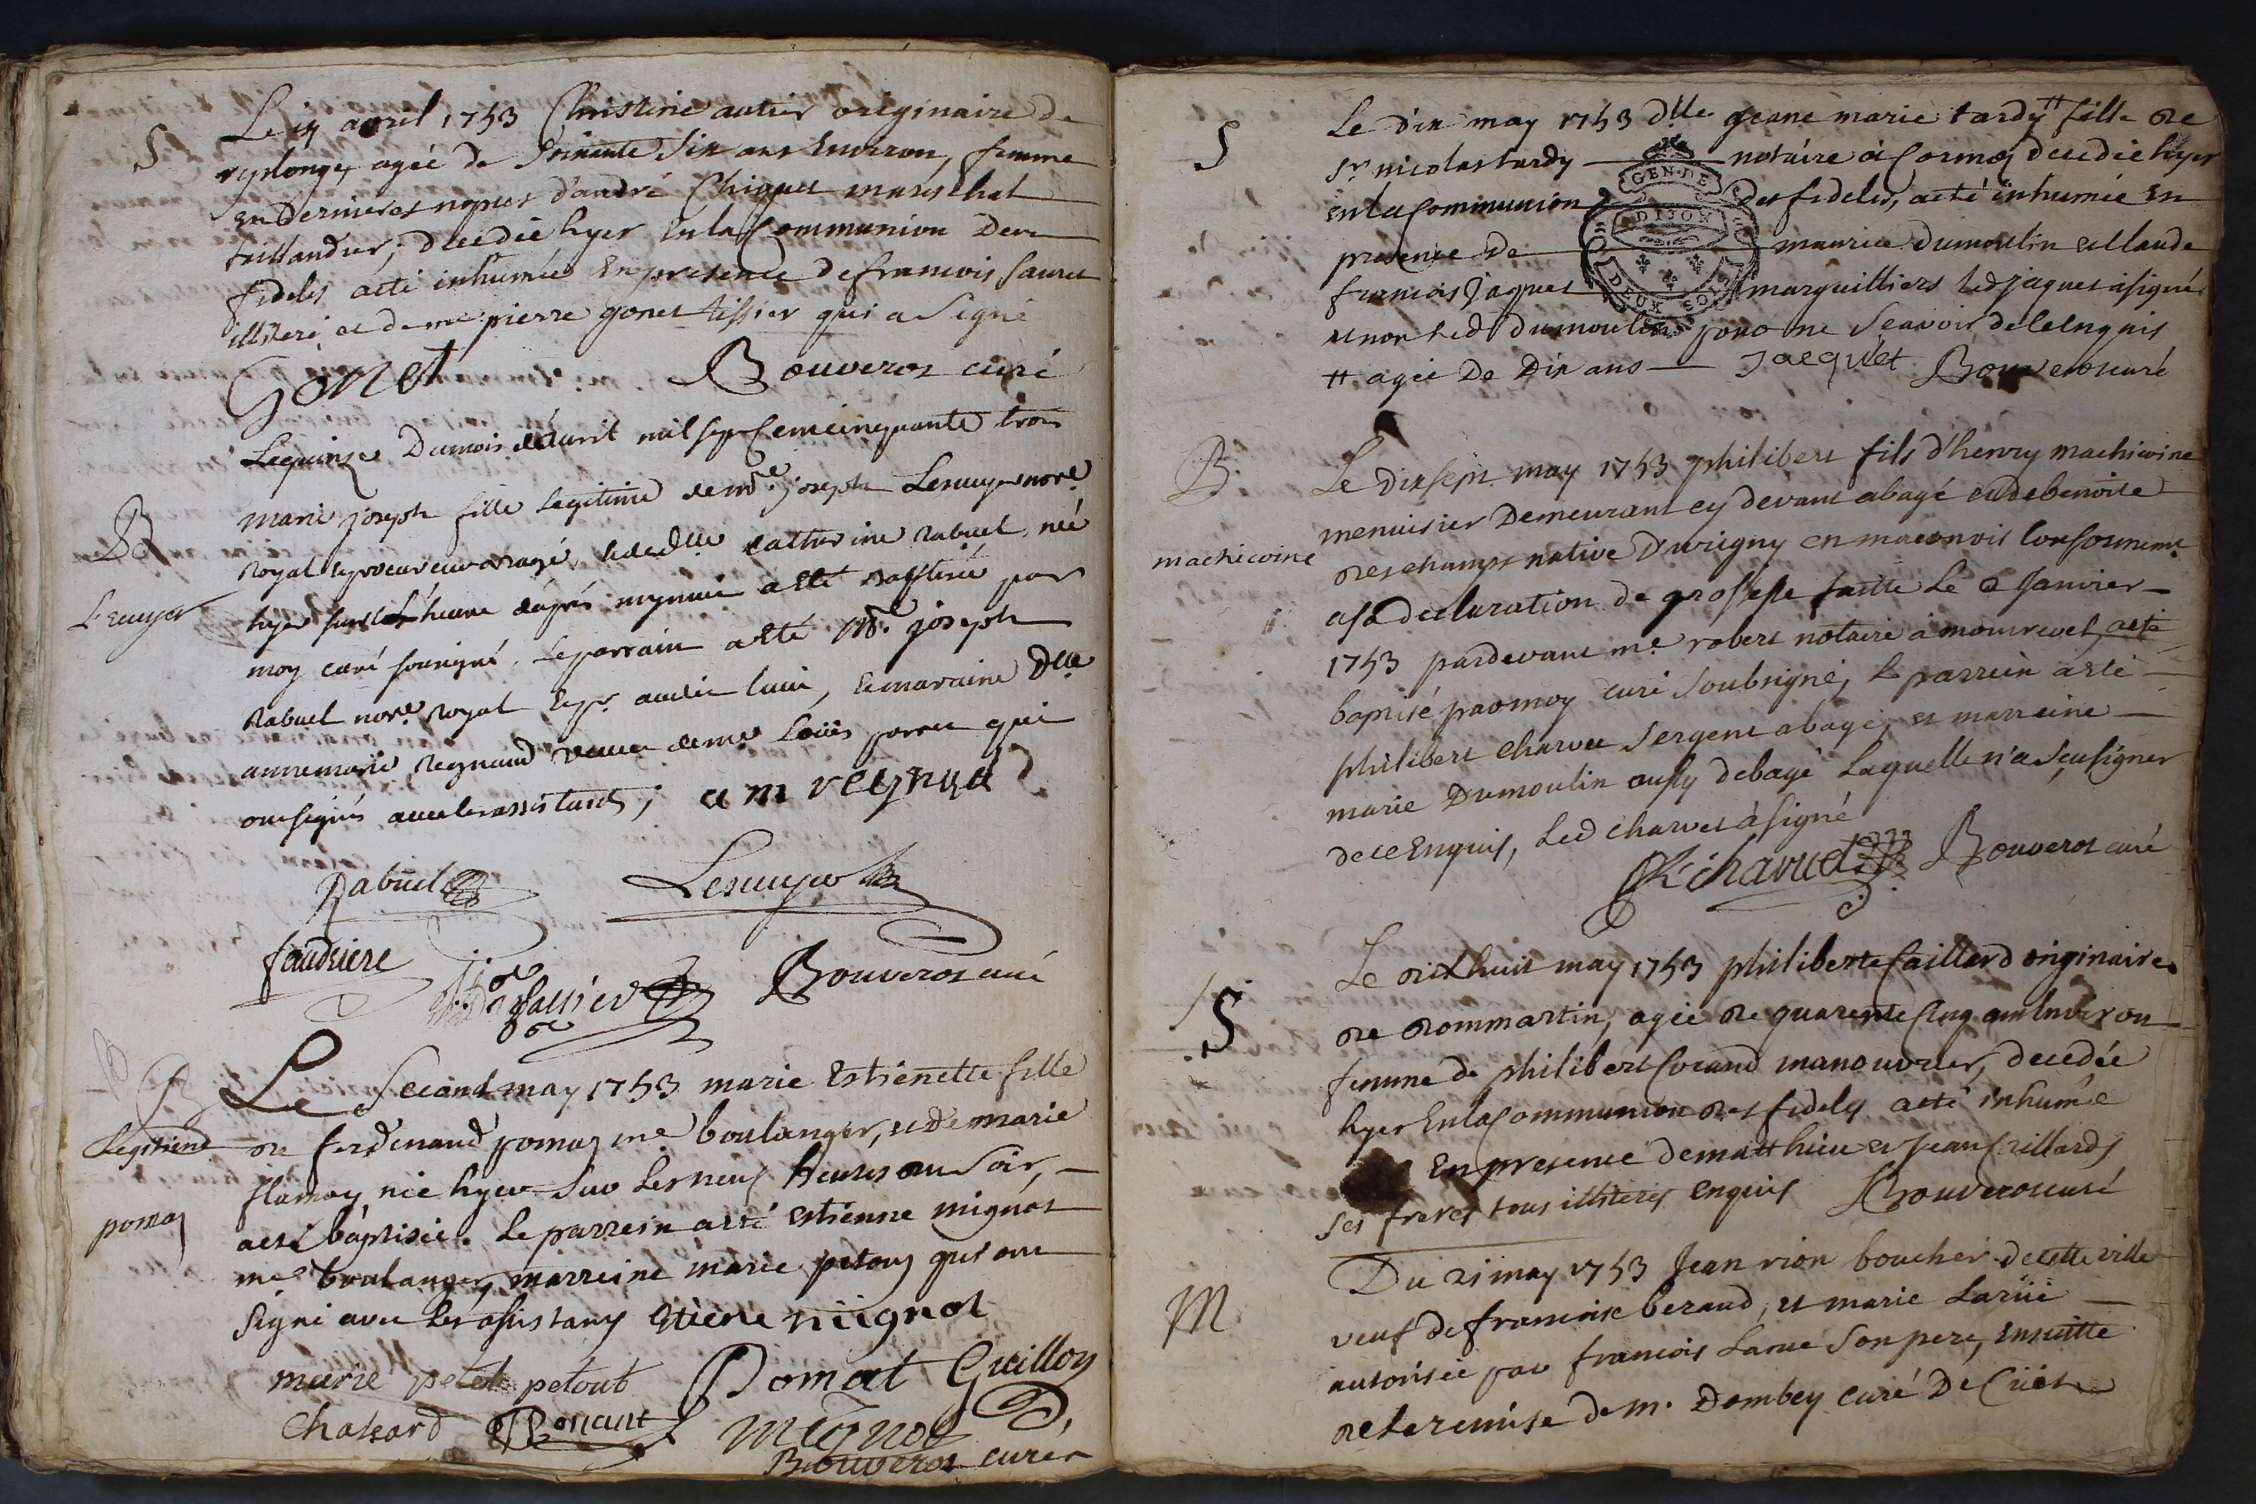 S
Le 14 avril 1753 Christine autier originaire de
replonges agée de soixante six ans Environ, femme
en dernieres nopces d'andré Chiquet mareschal
taillandier, decedée hyer En la Communion Des
fideles acté inhumée En presence de francois
illiteré et de me pierre gonet tissier qui a Signé
Gonet Bouverot curé
B
Lescuyer
Le quinze Du mois d'avril mil sept Cent cinquante trois
marie joseph fille legitime de me joseph Lescuyer nore
Royal et procureur a bagé, et de dlle catherine Rabuel, née
hyer sur les heure d'aprés mynuie a esté Baptisée par
moy curé sousigné, Le parrain a esté Me joseph
Rabuel nore Royal et pr audit lieu, la maraine Dlle
anne marie Reynaud veuve de me Loüis qui
ont signés avec les assistants; a m reynud
Rabuel Lescuyer
faudriere Bouverot curé
B
Legitime
pomaz
Le Second may 1753 marie Estienette fille
de ferdinand pomaz me boulanger, et de marie
flamay née hyer Sur Les neuf heures du Soir,
acté baptisée. Le parrein acté Estienne mignot
me boulanger, marreine marie petouz qui ont
Signé avec Les assistans Etiene mignot
marie petout Pomat Guilloz
Chassard Bonant mignot
Bouverot curé
S
Le dix may 1753 dlle Jeane marie tardy # fille de
Sr nicolas tardy notaire à Cormoz decedée hyer
En la Communion des fideles, acté inhumée En
presence de maurice dumoulin et Claude
francois Jaquet marguilliers led jaquet à signé
et non led dumoulin pour ne Scavoir de ce Enquis
# agée De Dix ans Jacquet Bouverot curé
GEN. DE
DIJON
DEUX SOLS
B
machicoine
Le dix sept may 1753 philibert fils d'henry machicoine
menuisier Demeurant cy devant a bagé et de benoite
deschamps native D'urigny en maconois Conformemt
a sa declaration de grossesse faitte Le 2 Janvier
1753 pardevant me robert notaire à montrevel, acté
baptisé par moy curé Soubsigné, Le parrein acté
philibert charvet Sergent a bagé, et marreine
marie Dumoulin aussy de bagé Laquelle n'a Sçu signer
de ce Enquis, Led charvet à signé
Ph charvet Bouverot curé
S
Le dixhuit may 1753 philiberte Caillard originaire
de dommartin, agée de quarente Cinq ans Environ
femme de philibert Corand manouvrier, decedée
hyer En la Communion des fideles acté inhumée
En presence de matthieu et Jean Caillards
Ses freres tous illiteres Enquis Bouverot curé
M
Du 21 may 1753 Jean rion boucher de cette ville
veuf de francoise beraud, et marie Larüe
autorisée par francois Larue Son pere, Ensuitte
de la remise de mr Dombey curé De Cüet